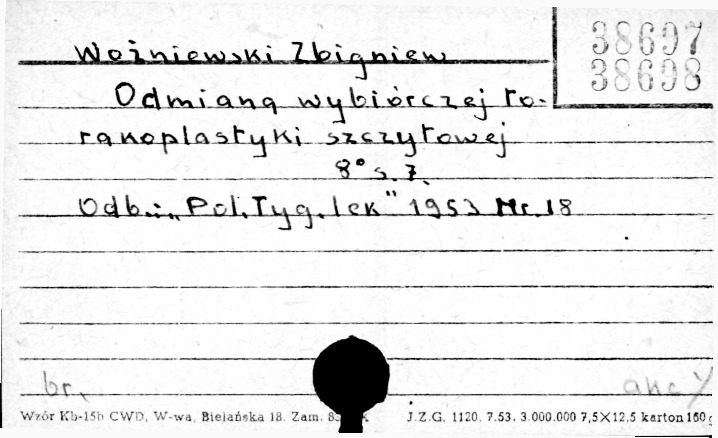 Woźniewski Zbigniew
38697
38698
Odmiana wybiórczej to-
rakoplastyki szczytowej
8° s. 7.
Odb.: „Pol. Tyg. lek" 1953 Nr. 18
br.
akc
Wzór Kb-15b CWD, W-wa, Bielańska 18. Zam. J.Z.G. 1120. 7.53. 3.000.000 7,5×12,5 karton 160 g